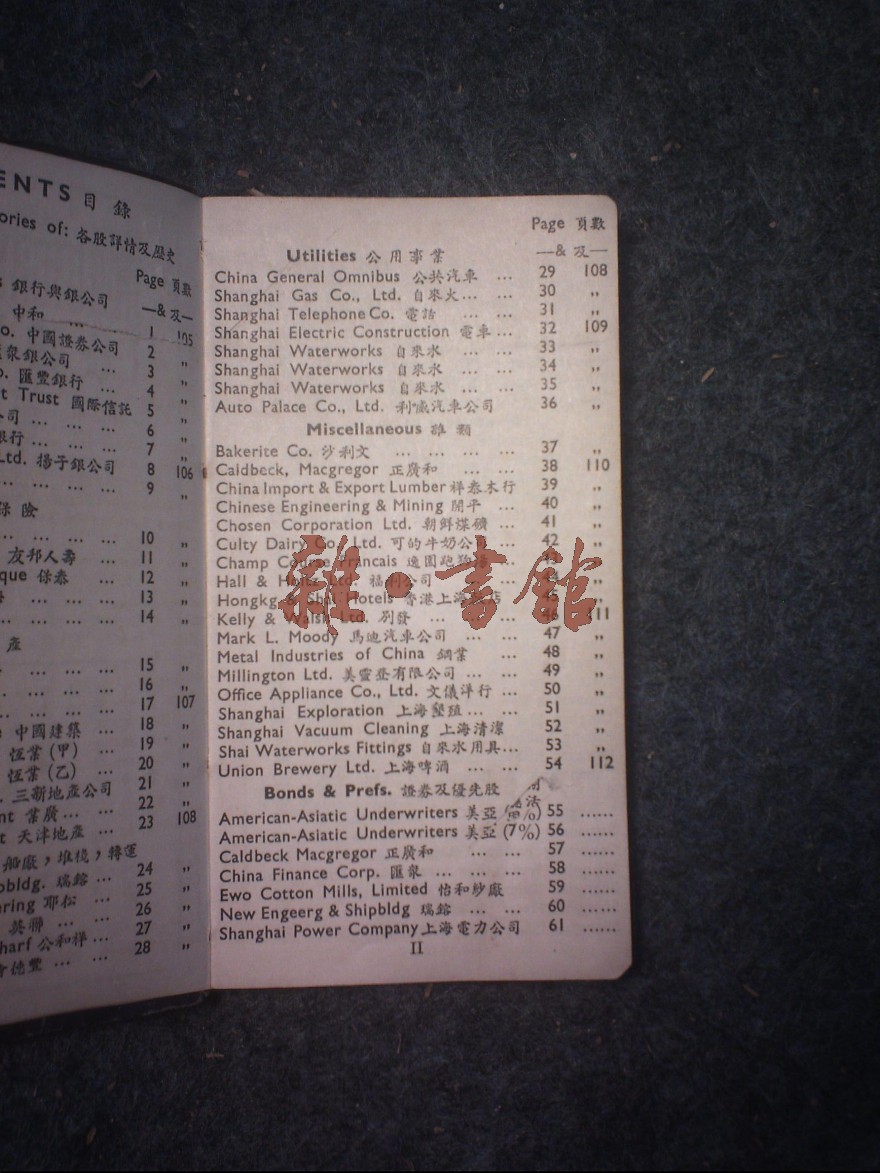 ENTS 目錄
ories of: 各股詳情及歷史
Page 頁數
—& 及—
銀行與銀公司
中和 ... 1 105
o. 中國證券公司 2 „
滙衆銀公司 ... 3 „
o. 匯豐銀行 ... 4 „
t Trust 國際信託 5 „
公司 ... ... ... 6 „
銀行 ... ... ... 7 „
Ltd. 揚子銀公司 8 106
... ... ... 9 „
保險
... ... ... 10 „
友邦人壽 ... 11 „
que 保泰 ... 12 „
... ... ... 13 „
... ... ... 14 „
產
... ... ... 15 „
... ... ... 16 „
... ... ... 17 107
中國建築 ... 18 „
恆業 (甲) ... 19 „
恆業 (乙) ... 20 „
三新地產公司 21 „
nt 業廣 ... ... 22 „
t 天津地產 ... 23 108
船廠,堆棧,轉運
pbldg. 瑞鎔 ... 24 „
ering 耶松 ... 25 „
英聯 ... ... 26 „
harf 公和祥 ... 27 „
會德豐 ... ... 28 „
Page 頁數
Utilities 公用事業 —& 及—
China General Omnibus 公共汽車 ... 29 108
Shanghai Gas Co., Ltd. 自來火 ... ... 30 „
Shanghai Telephone Co. 電話 ... ... 31 „
Shanghai Electric Construction 電車 ... 32 109
Shanghai Waterworks 自來水 ... ... 33 „
Shanghai Waterworks 自來水 ... ... 34 „
Shanghai Waterworks 自來水 ... ... 35 „
Auto Palace Co., Ltd. 利喊汽車公司 36 „
Miscellaneous 雜類
Bakerite Co. 沙利文 ... ... ... ... 37 „
Caldbeck, Macgregor 正廣和 ... ... 38 110
China Import & Export Lumber 祥泰木行 39 „
Chinese Engineering & Mining 開平 ... 40 „
Chosen Corporation Ltd. 朝鮮煤礦 ... 41 „
Culty Dairy Co., Ltd. 可的牛奶公司 ... 42 „
Champ Course Francais 逸園跑狗場 ... 43 „
Hall & Holtz Ltd. 福利公司 ... 44 „
Hongkg & Shai Hotels 香港上海 店 45 „
Kelly & Walsh Ltd. 別發 ... ... ... 46 111
Mark L. Moody 馬迪汽車公司 ... ... 47 „
Metal Industries of China 鋼業 ... 48 „
Millington Ltd. 美靈登有限公司 ... ... 49 „
Office Appliance Co., Ltd. 文儀洋行 ... 50 „
Shanghai Exploration 上海墾殖 ... ... 51 „
Shanghai Vacuum Cleaning 上海清潔 52 „
Shai Waterworks Fittings 自來水用具 ... 53 „
Union Brewery Ltd. 上海啤酒 ... ... 54 112
Bonds & Prefs. 證券及優先股
American-Asiatic Underwriters 美亞 55 ......
American-Asiatic Underwriters 美亞 (7%) 56 ......
Caldbeck Macgregor 正廣和 ... ... 57 ......
China Finance Corp. 匯衆 ... ... ... 58 ......
Ewo Cotton Mills, Limited 怡和紗廠 59 ......
New Engeerg & Shipbldg 瑞鎔 ... ... 60 ......
Shanghai Power Company 上海電力公司 61 ......
II
雜·書館